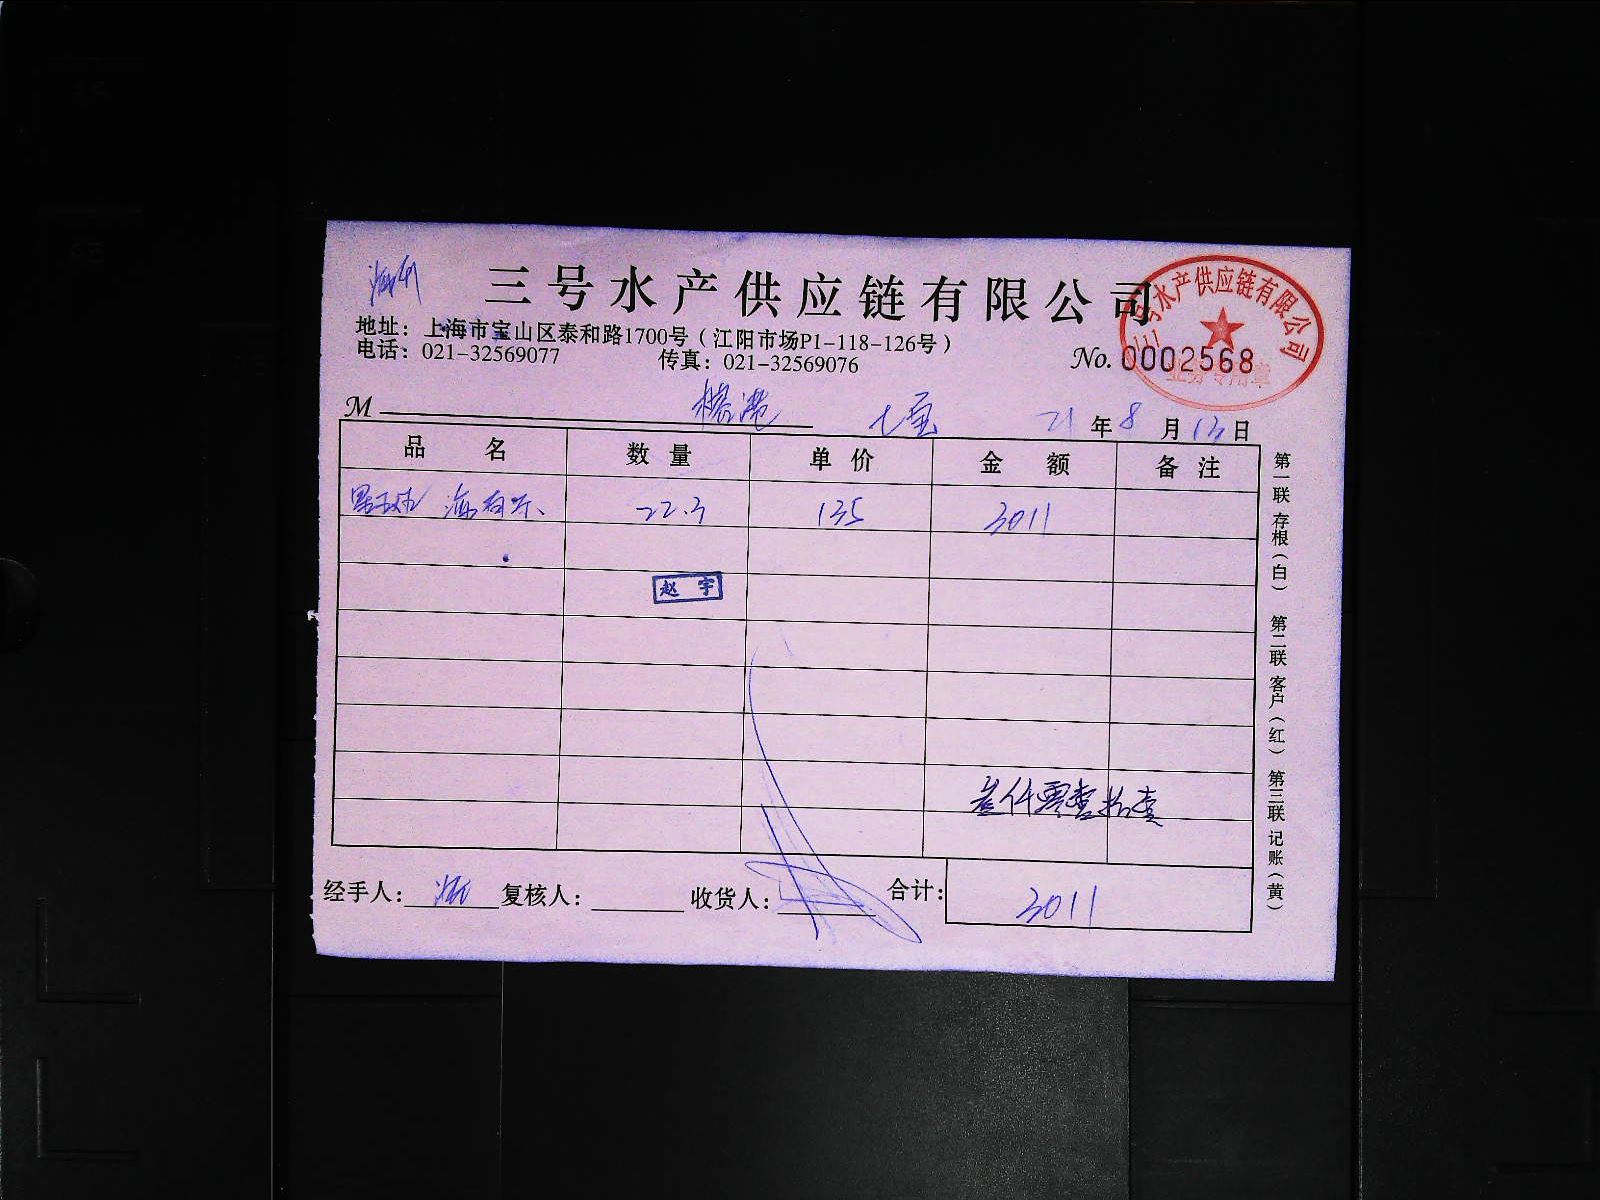 三号水产供应链有限公司
三号水产供应链有限公司
业务专用章
地址：上海市宝山区泰和路1700号（江阳市场P1-118-126号）
电话：021-32569077 传真：021-32569076 No. 0002568
M 七宝 21年8月13日
品名 数量 单价 金额 备注
22.3 135 3011
赵宇
叁仟零壹拾壹
经手人： 复核人： 收货人： 合计： 3011
第一联 存根（白） 第二联 客户（红） 第三联 记账（黄）